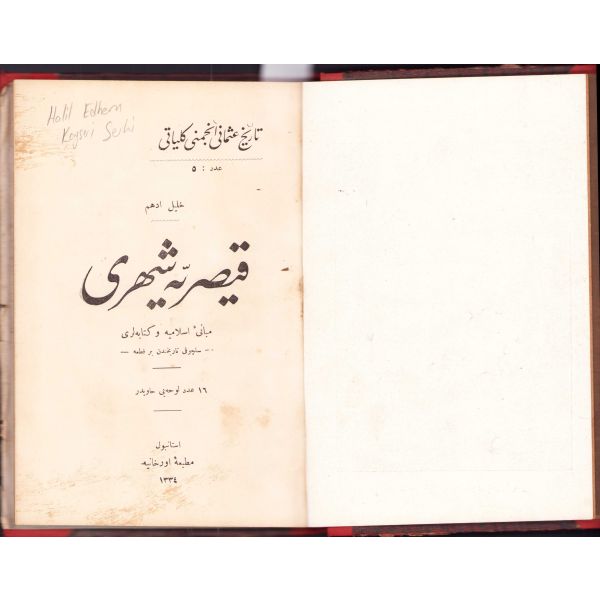 Halil Edhem
Kayseri Şehri
تاریخ عثمانی انجمنی کلیاتی
عدد : ٥
خلیل ادهم
قیصریه شهری
مبانیٔ اسلامیه و کتابه‌لری
— سلجوقی تاریخندن بر قطعه —
١٦ عدد لوحه‌یی حاویدر
استانبول
مطبعهٔ اورخانیه
١٣٣٤